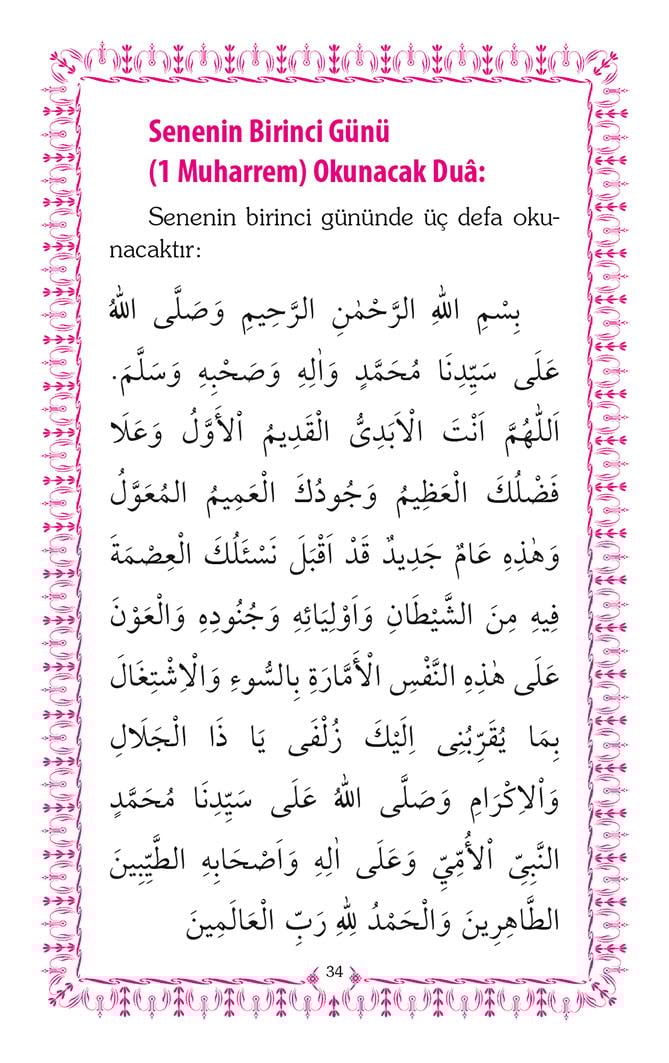 Senenin Birinci Günü
(1 Muharrem) Okunacak Duâ:
Senenin birinci gününde üç defa oku-
nacaktır:
بِسْمِ اللهِ الرَّحْمٰنِ الرَّحِيمِ وَصَلَّى اللهُ
عَلَى سَيِّدِنَا مُحَمَّدٍ وَاٰلِهِ وَصَحْبِهِ وَسَلَّمَ.
اَللّٰهُمَّ اَنْتَ الْاَبَدِىُّ الْقَدِيمُ اْلأَوَّلُ وَعَلَا
فَضْلُكَ الْعَظِيمُ وَجُودُكَ الْعَمِيمُ المُعَوَّلُ
وَهٰذِهِ عَامٌ جَدِيدٌ قَدْ اَقْبَلَ نَسْئَلُكَ الْعِصْمَةَ
فِيهِ مِنَ الشَّيْطَانِ وَاَوْلِيَائِهِ وَجُنُودِهِ وَالْعَوْنَ
عَلَى هٰذِهِ النَّفْسِ الْأَمَّارَةِ بِالسُّوءِ وَالْاِشْتِغَالَ
بِمَا يُقَرِّبُنِى اِلَيْكَ زُلْفَى يَا ذَا الْجَلَالِ
وَاْلاِكْرَامِ وَصَلَّى اللهُ عَلَى سَيِّدِنَا مُحَمَّدٍ
النَّبِيِّ اْلأُمِّيِّ وَعَلَى اٰلِهِ وَاَصْحَابِهِ الطَّيِّبِينَ
الطَّاهِرِينَ وَالْحَمْدُ لِلهِ رَبِّ الْعَالَمِينَ
34